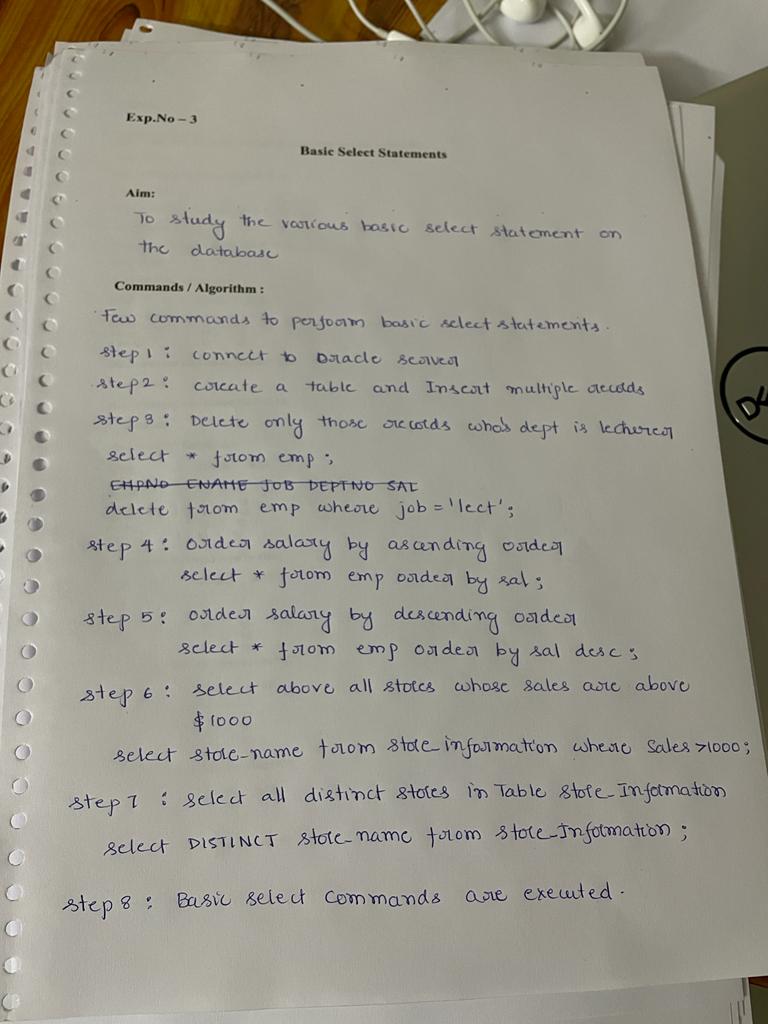 Exp.No – 3
Basic Select Statements
Aim:
To study the various basic select statement on
the database
Commands / Algorithm :
Few commands to perform basic select statements.
step 1 : connect to Oracle server
step 2 : create a table and Insert multiple records
step 3 : Delete only those records who's dept is lecherer
select * from emp ;
EMPNO ENAME JOB DEPTNO SAL
delete from emp where job = 'lect';
step 4 : order salary by ascending order
select * from emp order by sal ;
step 5 : order salary by descending order
select * from emp order by sal desc ;
step 6 : select above all stores whose sales are above
$1000
select store_name from store_information where Sales >1000;
step 7 : select all distinct stores in Table store_Information
select DISTINCT store_name from store_Information ;
step 8 : Basic select commands are executed.